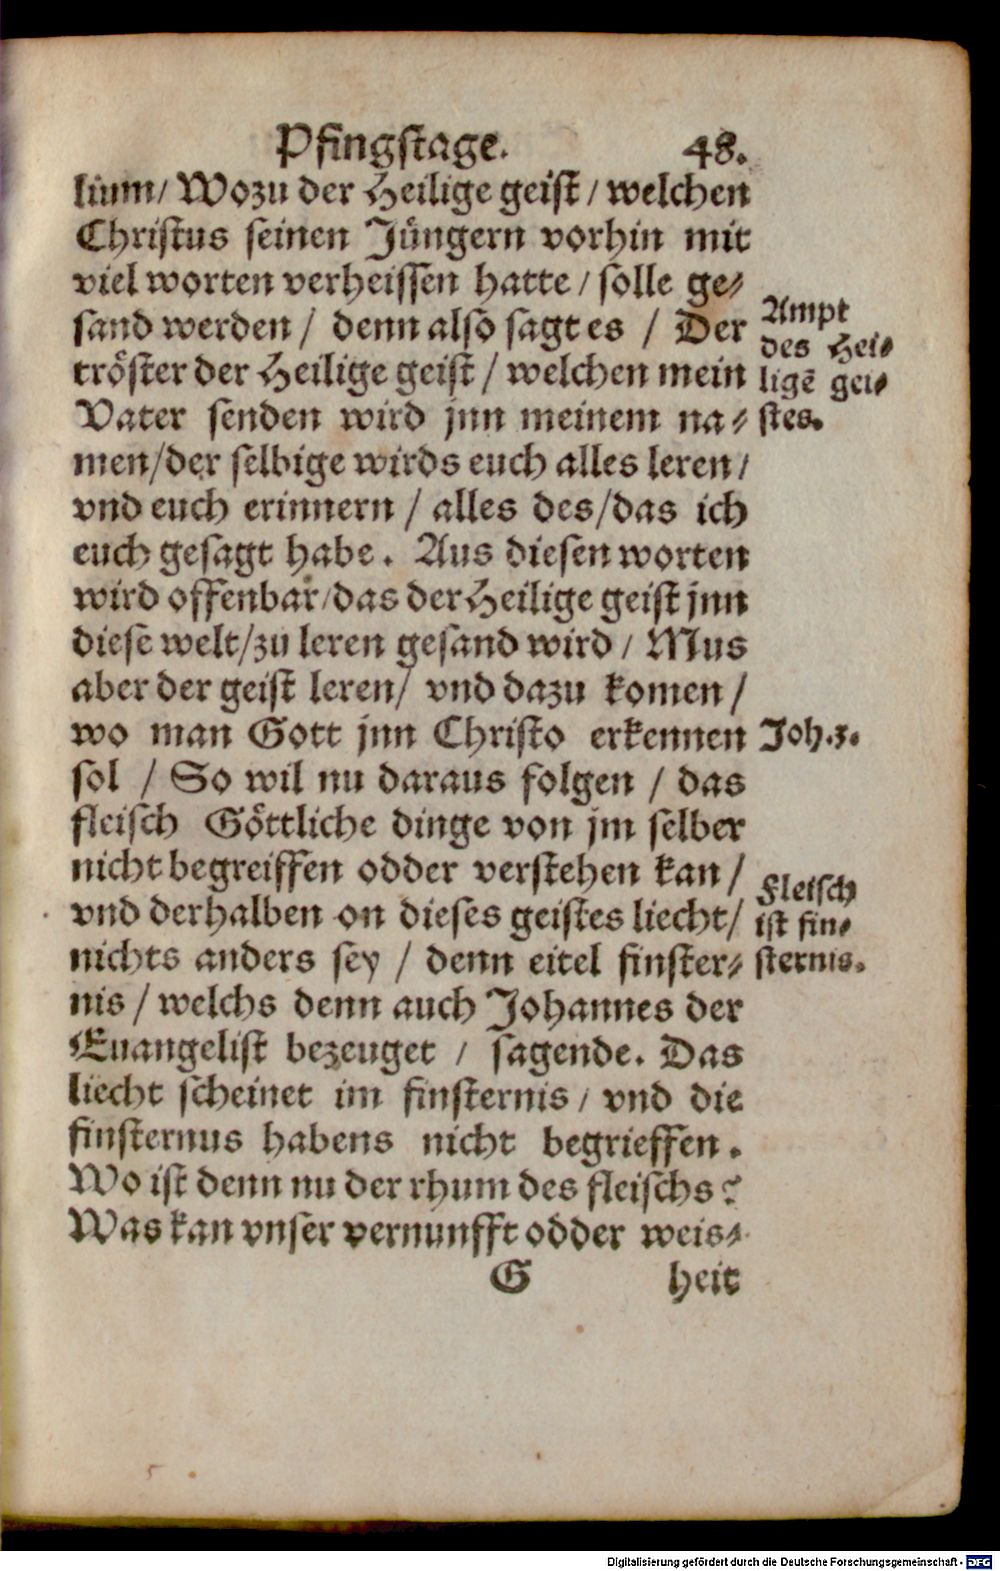 Pfingstage. 48.
lium/ Wozu der Heilige geist / welchen
Christus seinen Jüngern vorhin mit
viel worten verheissen hatte / solle ge⸗
sand werden / denn also sagt es / Der
tröster der Heilige geist / welchen mein
Vater senden wird jnn meinem na⸗
men/der selbige wirds euch alles leren/
vnd euch erinnern / alles des/das ich
euch gesagt habe. Aus diesen worten
wird offenbar/das der Heilige geist jnn
diese welt/zu leren gesand wird / Mus
aber der geist leren/ vnd dazu komen /
wo man Gott jnn Christo erkennen
sol / So wil nu daraus folgen / das
fleisch Göttliche dinge von jm selber
nicht begreiffen odder verstehen kan /
vnd derhalben on dieses geistes liecht/
nichts anders sey / denn eitel finster⸗
nis / welchs denn auch Johannes der
Euangelist bezeuget / sagende. Das
liecht scheinet im finsternis / vnd die
finsternus habens nicht begrieffen.
Wo ist denn nu der rhum des fleischs?
Was kan vnser vernunfft odder weis⸗
G heit
Ampt
des Hei⸗
ligē gei⸗
stes.
Joh.3.
Fleisch
ist fin⸗
sternis.
Digitalisierung gefördert durch die Deutsche Forschungsgemeinschaft - DFG